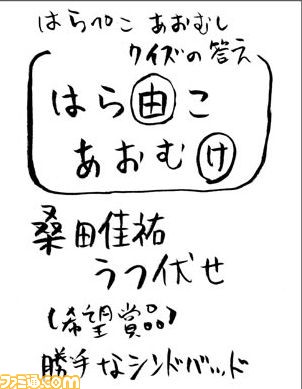 はらぺこ あおむし
クイズの答え
はら由こ
あおむけ
桑田佳祐
うつ伏せ
(希望賞品)
勝手なシンドバッド
ファミ通.com